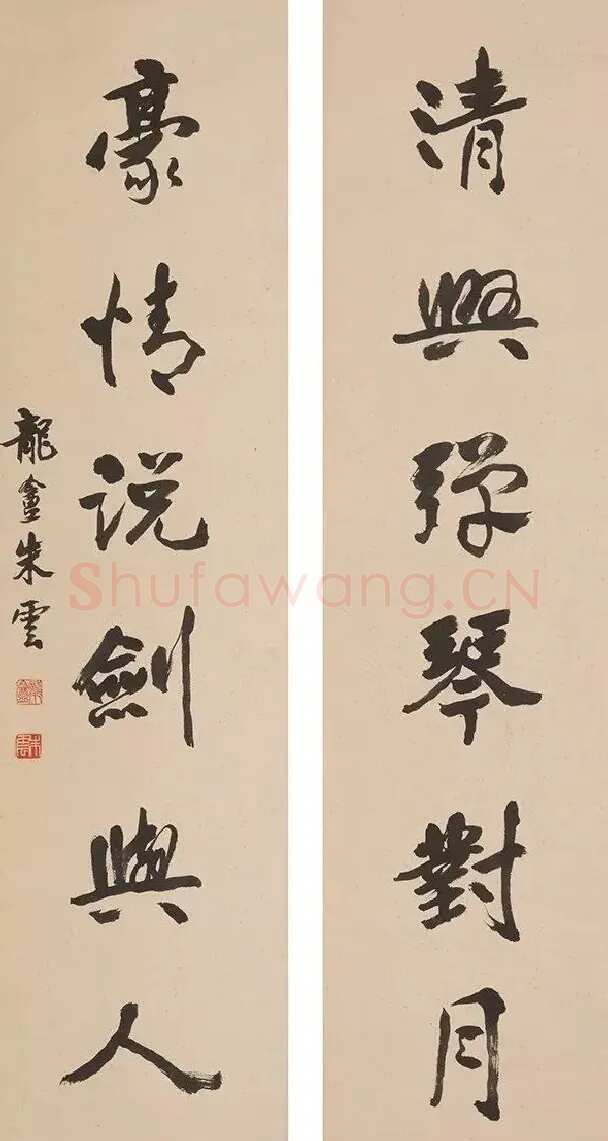 清興彈琴對月
豪情説劍與人
龍盦朱雲
Shufawang.CN